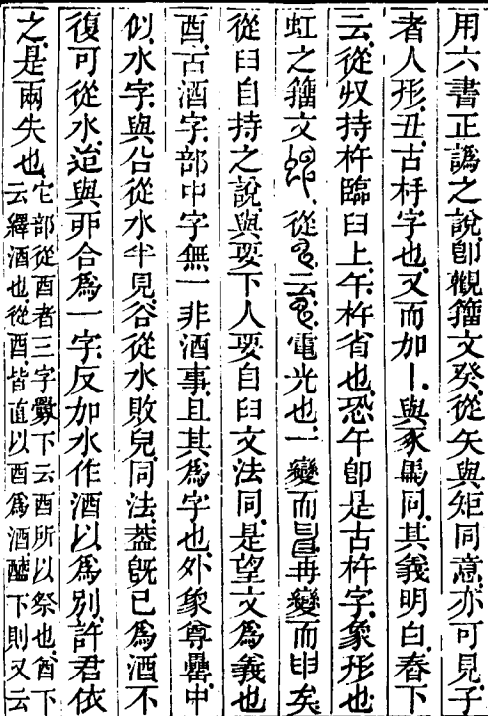 用六書正譌之說卽觀籀文癸從矢與矩同意亦可見子
者人形丑古杽字也又而加丨與豕馬同其義明白舂下
云從収持杵臨臼上午杵省也恐午卽是古杵字象形也
虹之籀文從云電光也一變而再變而申矣
從臼自持之說與要下人要自臼文法同是望文爲義也
酉古酒字部中字無一非酒事且其爲字也外象尊罍中
似水字與㕣從水半見谷從水敗皃同法葢旣已爲酒不
復可從水迨與丣合爲一字反加水作酒以爲別許君依
之是兩失也
它部從酉者三字下云酉所以祭也酋下
云繹酒也從酉皆直以酉爲酒醢下則又云